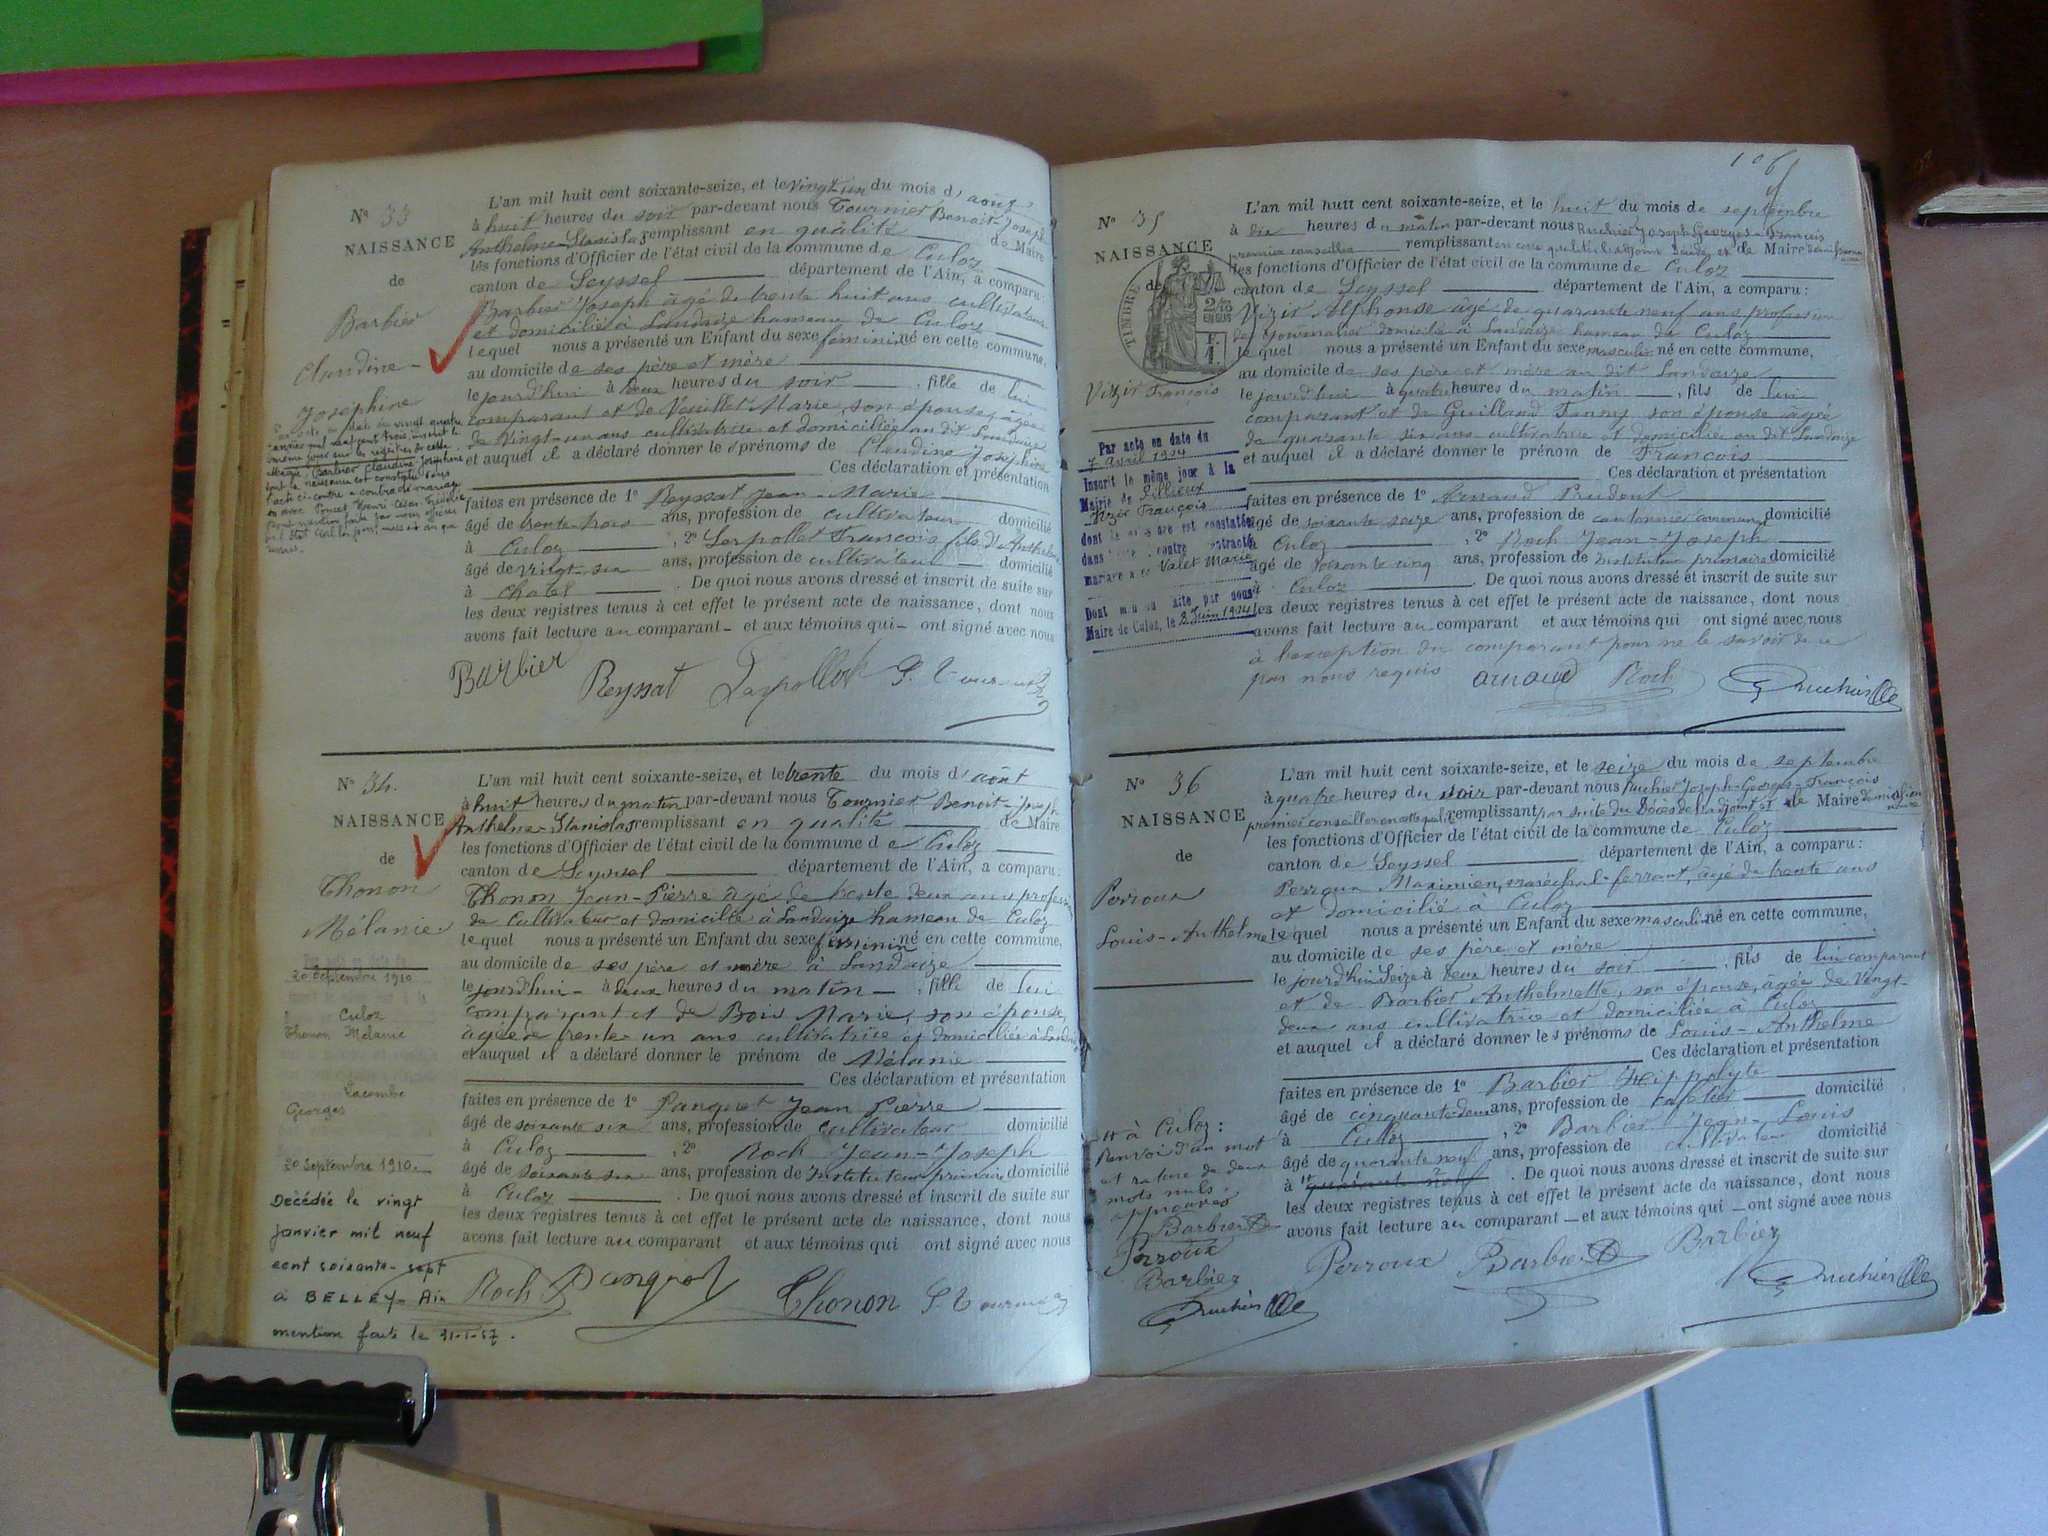 N° 33
NAISSANCE
de
Barbier
Claudine-
Joséphine
L'an mil huit cent soixante-seize, et le vingt un du mois d'août
à huit heures du soir par-devant nous Tournier Benoit-Joseph
Anthelme-Stanislas remplissant en qualité de Maire
les fonctions d'Officier de l'état civil de la commune de Culoz
canton de Seyssel département de l'Ain, a comparu:
Barbier Joseph âgé de trente huit ans cultivateur
et domicilié à Landaize hameau de Culoz
lequel nous a présenté un Enfant du sexe féminin né en cette commune,
au domicile de ses père et mère
le jourd'hui à deux heures du soir, fille de lui
comparant et de Veuillet Marie, son épouse, âgée
de vingt-un ans cultivatrice et domiciliée au dit Landaize
et auquel il a déclaré donner les prénoms de Claudine Joséphine
Ces déclaration et présentation
faites en présence de 1° Reyssat Jean-Marie
âgé de trente-trois ans, profession de cultivateur domicilié
à Culoz, 2° Serpollet François fils d'Anthelme
âgé de vingt-six ans, profession de cultivateur domicilié
à Chatel. De quoi nous avons dressé et inscrit de suite sur
les deux registres tenus à cet effet le présent acte de naissance, dont nous
avons fait lecture au comparant et aux témoins qui ont signé avec nous
Barbier Reyssat Serpollet
N° 34.
NAISSANCE
de
Thonon
Mélanie
20 Septembre 1910
Culoz
Thonon Mélanie
Lacombe
Georges
20 septembre 1910
Décédée le vingt
janvier mil neuf
cent soixante-sept
à BELLEY-Ain
mention faite le 31-1-67.
L'an mil huit cent soixante-seize, et le trente du mois d'août
à huit heures du matin par-devant nous Tournier Benoit-Joseph
Anthelme-Stanislas remplissant en qualité de Maire
les fonctions d'Officier de l'état civil de la commune de Culoz
canton de Seyssel département de l'Ain, a comparu:
Thonon Jean-Pierre âgé de trente deux ans profession
de cultivateur et domicilié à Landaize hameau de Culoz
lequel nous a présenté un Enfant du sexe féminin né en cette commune,
au domicile de ses père et mère à Landaize
le jourd'hui à deux heures du matin, fille de lui
comparant et de Bois Marie, son épouse,
âgée de trente-un ans cultivatrice et domiciliée à Landaize
et auquel il a déclaré donner le prénom de Mélanie
Ces déclaration et présentation
faites en présence de 1° Panquet Jean Pierre
âgé de soixante six ans, profession de cultivateur domicilié
à Culoz, 2° Roch Jean-Joseph
âgé de soixante six ans, profession de Instituteur primaire domicilié
à Culoz. De quoi nous avons dressé et inscrit de suite sur
les deux registres tenus à cet effet le présent acte de naissance, dont nous
avons fait lecture au comparant et aux témoins qui ont signé avec nous
Roch Panquet Thonon
N° 35
NAISSANCE
de
TIMBRE
Vizir François
Par acte en date du
7 Avril 1904
Inscrit le même jour à la
Mairie de
Vizir François
dont la naissance est constatée
dans l'acte ci-contre a contracté
mariage avec Valet Marie
Dont mention faite par nous
Maire de Culoz, le 8 Juin 1904
L'an mil huit cent soixante-seize, et le huit du mois de septembre
à dix heures du matin par-devant nous Ruchier Joseph Georges-François
premier conseiller remplissant en cette qualité de Maire
les fonctions d'Officier de l'état civil de la commune de Culoz
canton de Seyssel département de l'Ain, a comparu:
Vizir Alphonse âgé de quarante neuf ans profession
de journalier domicilié à Landaize hameau de Culoz
lequel nous a présenté un Enfant du sexe masculin né en cette commune,
au domicile de ses père et mère au dit Landaize
le jourd'hui à quatre heures du matin, fils de lui
comparant et de Guilland Fanny, son épouse âgée
de quarante six ans cultivatrice et domiciliée au dit Landaize
et auquel il a déclaré donner le prénom de François
Ces déclaration et présentation
faites en présence de 1° Arnaud Prudent
âgé de soixante seize ans, profession de cantonnier communal domicilié
à Culoz, 2° Roch Jean-Joseph
âgé de soixante cinq ans, profession de Instituteur primaire domicilié
à Culoz. De quoi nous avons dressé et inscrit de suite sur
les deux registres tenus à cet effet le présent acte de naissance, dont nous
avons fait lecture au comparant et aux témoins qui ont signé avec nous
à l'exception du comparant pour ne le savoir de ce
par nous requis arnaud Roch
N° 36
NAISSANCE
de
Perroux
Louis-Anthelme
L'an mil huit cent soixante-seize, et le seize du mois de septembre
à quatre heures du soir par-devant nous Ruchier Joseph-Georges-François
premier conseiller en cette qualité remplissant par suite du Décès de l'adjoint et de Maire
les fonctions d'Officier de l'état civil de la commune de Culoz
canton de Seyssel département de l'Ain, a comparu:
Perroux Maximien, maréchal-ferrant, âgé de trente ans
et domicilié à Culoz
lequel nous a présenté un Enfant du sexe masculin né en cette commune,
au domicile de ses père et mère
le jourd'hui Seize à deux heures du soir, fils de lui comparant
et de Barbier Anthelmette, son épouse, âgée de vingt-
deux ans cultivatrice et domiciliée à Culoz
et auquel il a déclaré donner les prénoms de Louis-Anthelme
Ces déclaration et présentation
faites en présence de 1° Barbier Hippolyte
âgé de cinquante-deux ans, profession de cafetier domicilié
à Culoz, 2° Barbier Jean-Louis
âgé de quarante neuf ans, profession de cultivateur domicilié
à quarante neuf. De quoi nous avons dressé et inscrit de suite sur
les deux registres tenus à cet effet le présent acte de naissance, dont nous
avons fait lecture au comparant et aux témoins qui ont signé avec nous
Perroux Barbier Barbier
à Culoz:
Renvoi d'un mot
et rature de deux
mots nuls
approuvés
Barbier
Perroux
Barbier